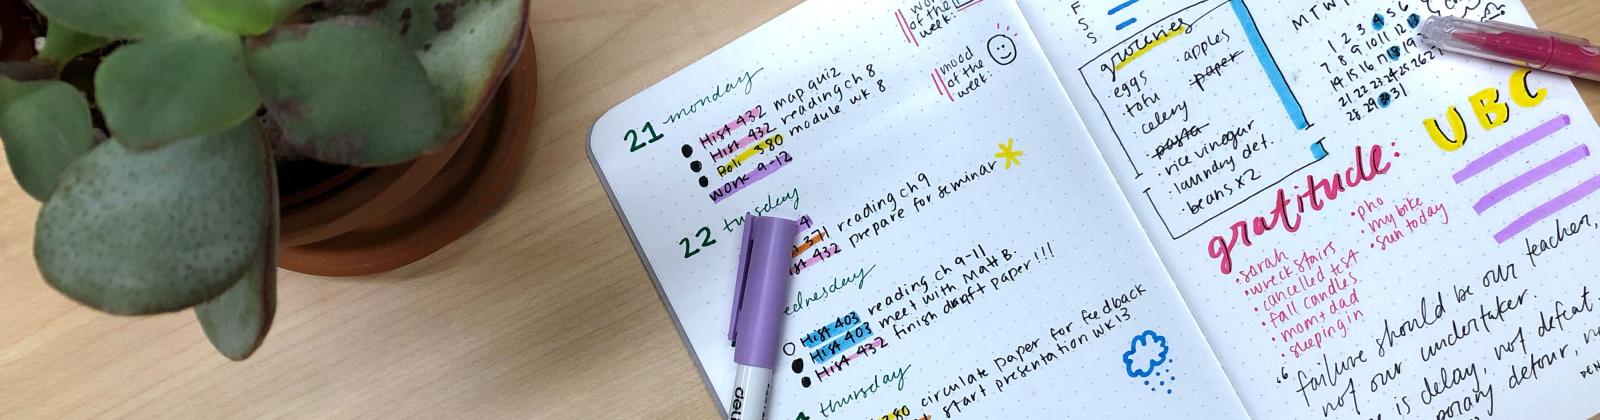 of the
week:
mood
of the
week:
21 monday
Hist 432 map quiz
Hist 432 reading ch 8
Poli 380 module wk 8
work 9-12
22 tuesday
4
371 reading ch 9
432 prepare for seminar
ednesday
Hist 403 reading ch 9-11
Hist 403 meet with Matt B.
Hist 432 finish draft paper!!!
thursday
380 circulate paper for feedback
start presentation wk 13
F
S
S
groceries
· eggs
· tofu
· celery
· pasta
· rice vinegar
· laundry det.
· beans x2
· apples
· paper
M T W T
1 2 3 4 5 6
7 8 9 10 11 12 13
14 15 16 17 18 19
21 22 23 24 25 26 27
28 29 30 31
UBC
gratitude:
· sarah
· wreck stairs
· cancelled test
· fall candles
· mom + dad
· sleeping in
· pho
· my bike
· sun today
"failure should be our teacher,
not our undertaker.
is delay, not defeat
porary detour, n